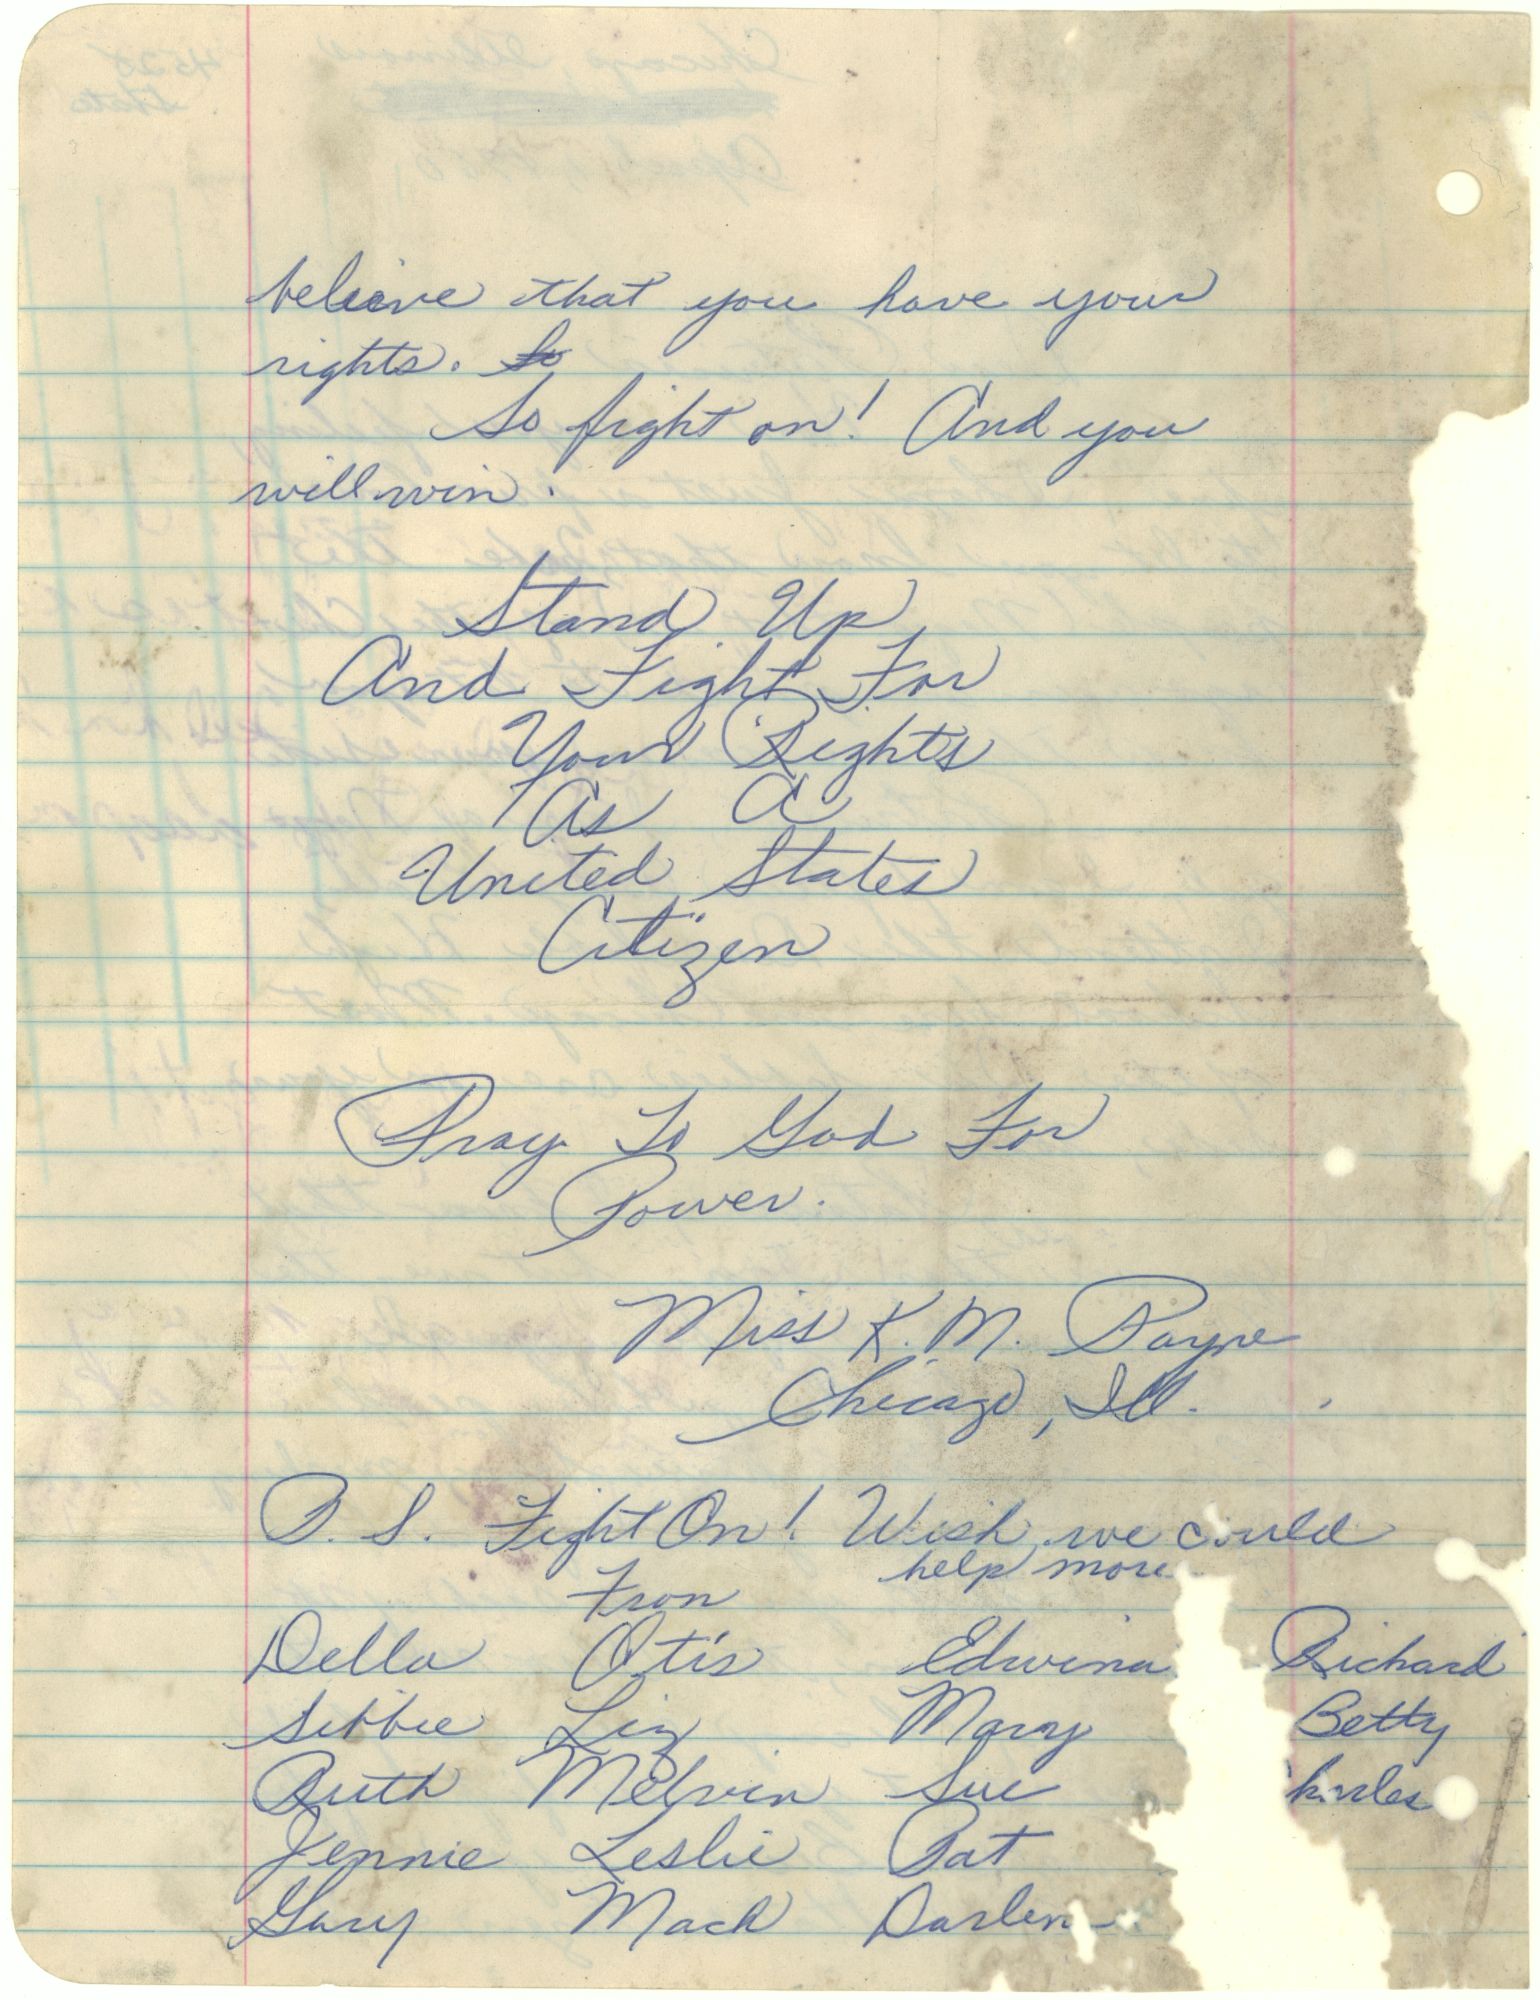 believe that you have your
rights. So
So fight on! And you
will win.
Stand Up
And Fight For
Your Rights
As A
United States
Citizen
Pray To God For
Power.
Miss K. M. Payne
Chicago, Ill.
P. S. Fight On! Wish we could
help more
From
Della Otis Edwina Richard
Sibbie Liz Mary Betty
Ruth Melvin Sue harles
Jennie Leslie Pat
Gary Mack Darlen